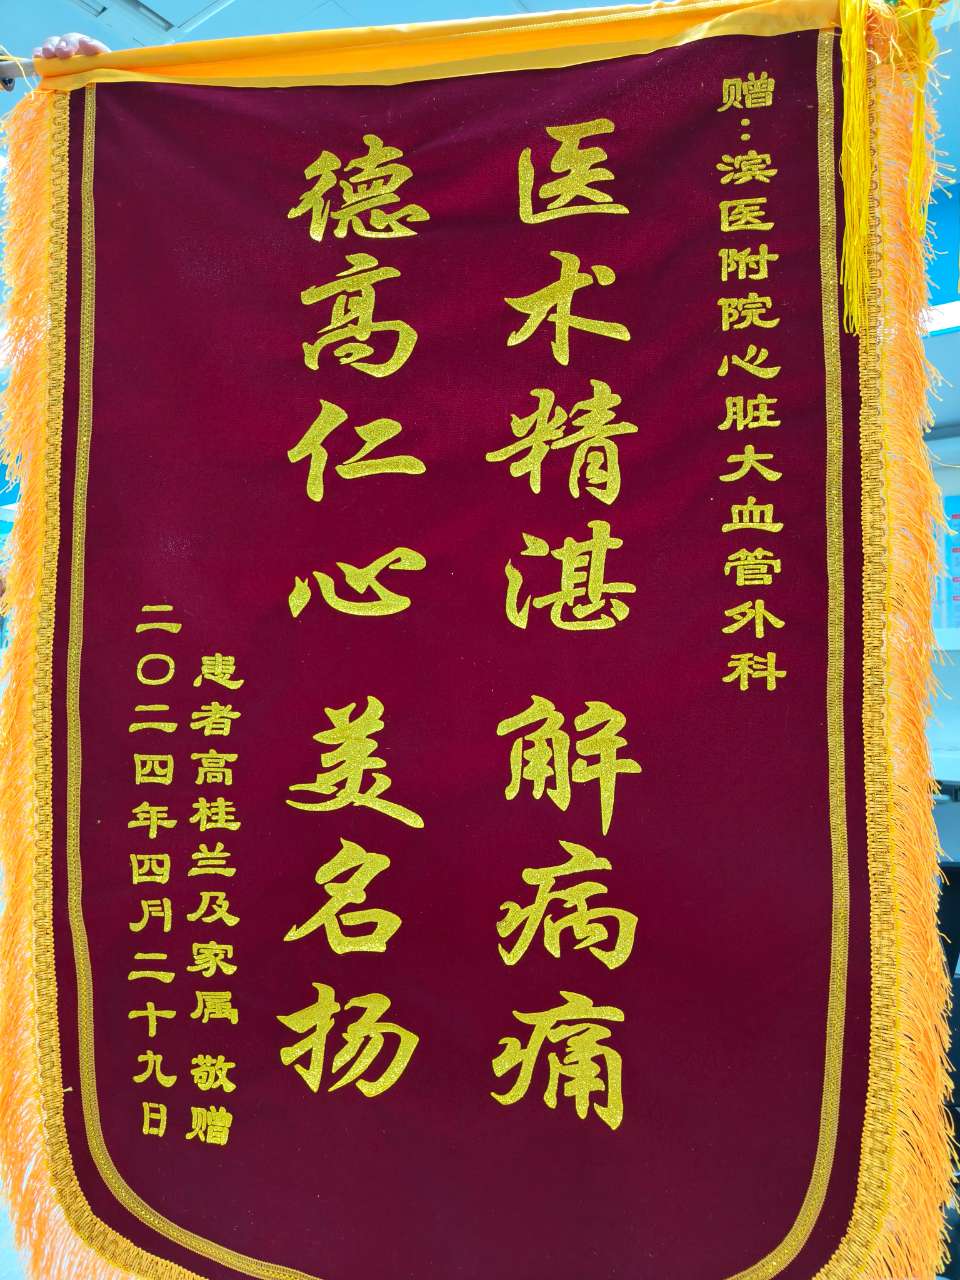 赠:滨医附院心脏大血管外科
医术精湛 解病痛
德高仁心 美名扬
患者高桂兰及家属 敬赠
二〇二四年四月二十九日